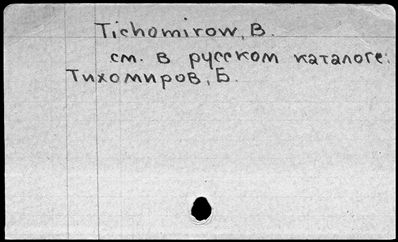 Tichomirow, B.
см. в русском каталоге:
Тихомиров, Б.